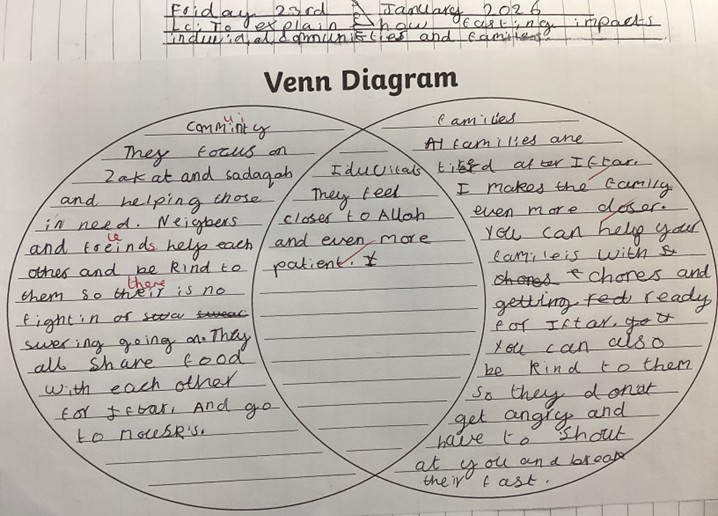 Friday 23rd January 2026
Lc: To explain how fasting impacts
individal communities and families.
Venn Diagram
Community
They focus on
Zakat and sadaqah
and helping those
in need. Neigbers
and freinds help each
other and be kind to
them so their there is no
fightin or swear
swering going on. They
all share food
with each other
for Iftar. And go
to
Iduvitals
They feel
closer to Allah
and even more
patient.
families
At families are
tired after Iftar.
I makes the family
even more closer.
You can help your
famileis with
chores chores and
getting red ready
for Iftar. you
You can also
be kind to them
so they donut
get angry and
have to shout
at you and break
their fast.